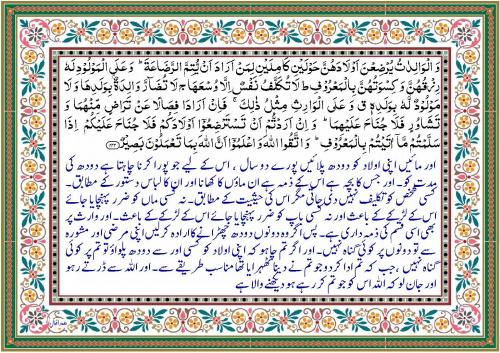 وَالْوَالِدٰتُ يُرْضِعْنَ اَوْلَادَهُنَّ حَوْلَيْنِ كَامِلَيْنِ لِمَنْ اَرَادَ اَنْ يُّتِمَّ الرَّضَاعَةَ ؕ وَعَلَى الْمَوْلُوْدِ لَهٗ
رِزْقُهُنَّ وَكِسْوَتُهُنَّ بِالْمَعْرُوْفِ ؕ لَا تُكَلَّفُ نَفْسٌ اِلَّا وُسْعَهَا ۚ لَا تُضَآرَّ وَالِدَةٌۢ بِوَلَدِهَا وَلَا
مَوْلُوْدٌ لَّهٗ بِوَلَدِهٖ ق وَ عَلَى الْوَارِثِ مِثْلُ ذٰلِكَ ۚ فَاِنْ اَرَادَا فِصَالًا عَنْ تَرَاضٍ مِّنْهُمَا وَ
تَشَاوُرٍ فَلَا جُنَاحَ عَلَيْهِمَا ؕ وَ اِنْ اَرَدْتُّمْ اَنْ تَسْتَرْضِعُوْٓا اَوْلَادَكُمْ فَلَا جُنَاحَ عَلَيْكُمْ اِذَا
سَلَّمْتُمْ مَّآ اٰتَيْتُمْ بِالْمَعْرُوْفِ ؕ وَ اتَّقُوا اللّٰهَ وَاعْلَمُوْٓا اَنَّ اللّٰهَ بِمَا تَعْمَلُوْنَ بَصِيْرٌ ﴿۲۳۳﴾
اور مائیں اپنی اولاد کو دودھ پلائیں پورے دو سال ، اس کے لیے جو پورا کرنا چاہتا ہے دودھ کی
مدت کو۔ اور جس کا بچہ ہے اس کے ذمہ ہے ان ماؤں کا کھانا اور ان کا لباس دستور کے مطابق۔
کسی شخص کو تکلیف نہیں دی جاتی مگر اس کی حیثیت کے مطابق۔ نہ کسی ماں کو ضرر پہنچایا جائے
اس کے لڑکے کے باعث اور نہ کسی باپ کو ضرر پہنچایا جائے اس کے لڑکے کے باعث۔ اور وارث پر
بھی اسی قسم کی ذمہ داری ہے۔ پس اگر وہ دونوں دودھ چھڑانے کا ارادہ کر لیں اپنی مرضی اور مشورہ
سے تو دونوں پر کوئی گناہ نہیں۔ اور اگر تم چاہو کہ اپنی اولاد کو کسی اور سے دودھ پلواؤ تو تم پر کوئی
گناہ نہیں ، جب کہ تم ادا کر دو جو تم نے دینا ٹھہرایا تھا مناسب طریقے سے۔ اور اللہ سے ڈرتے رہو
اور جان لو کہ اللہ اس کو جو تم کر رہے ہو دیکھنے والا ہے